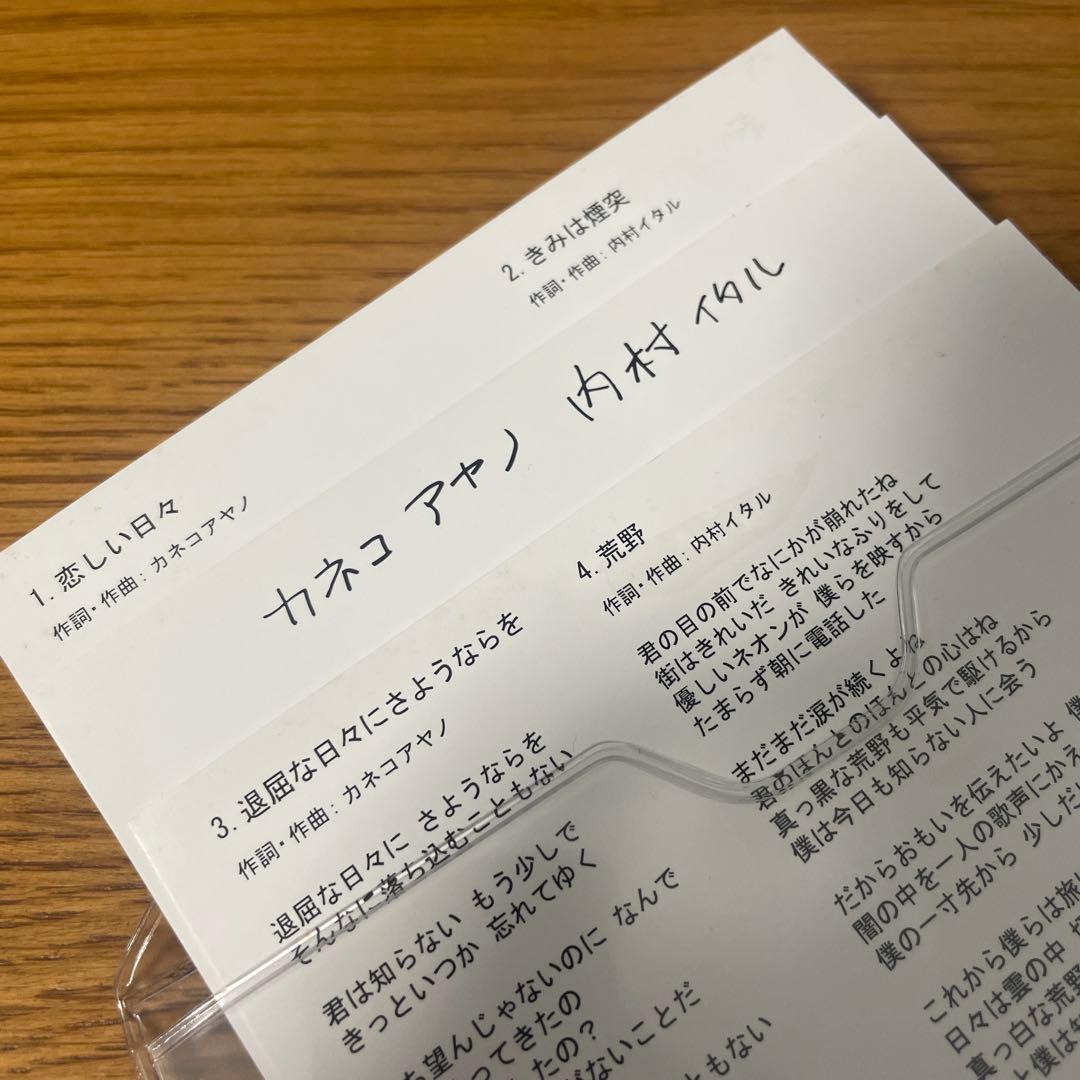 1. 恋しい日々
作詞・作曲：カネコアヤノ
2. きみは煙突
作詞・作曲：内村イタル
カネコアヤノ 内村イタル
3. 退屈な日々にさようならを
作詞・作曲：カネコアヤノ
退屈な日々に さようならを
そんなに落ち込むこともない
君は知らない もう少しで
きっといつか 忘れてゆく
望んじゃないのに なんで
ってきたの
したの？
がないことだ
ともない
4. 荒野
作詞・作曲：内村イタル
君の目の前でなにかが崩れたね
街はきれいだ きれいなふりをして
優しいネオンが 僕らを映すから
たまらず朝に電話した
まだまだ涙が続くよね
君のほんとのほんとの心はね
真っ黒な荒野も平気で駆けるから
僕は今日も知らない人に会う
だからおもいを伝えたいよ 僕
闇の中を一人の歌声にかえ
僕の一寸先から 少しだけ
これから僕らは旅
日々は雲の中
真っ白な荒野
僕は知